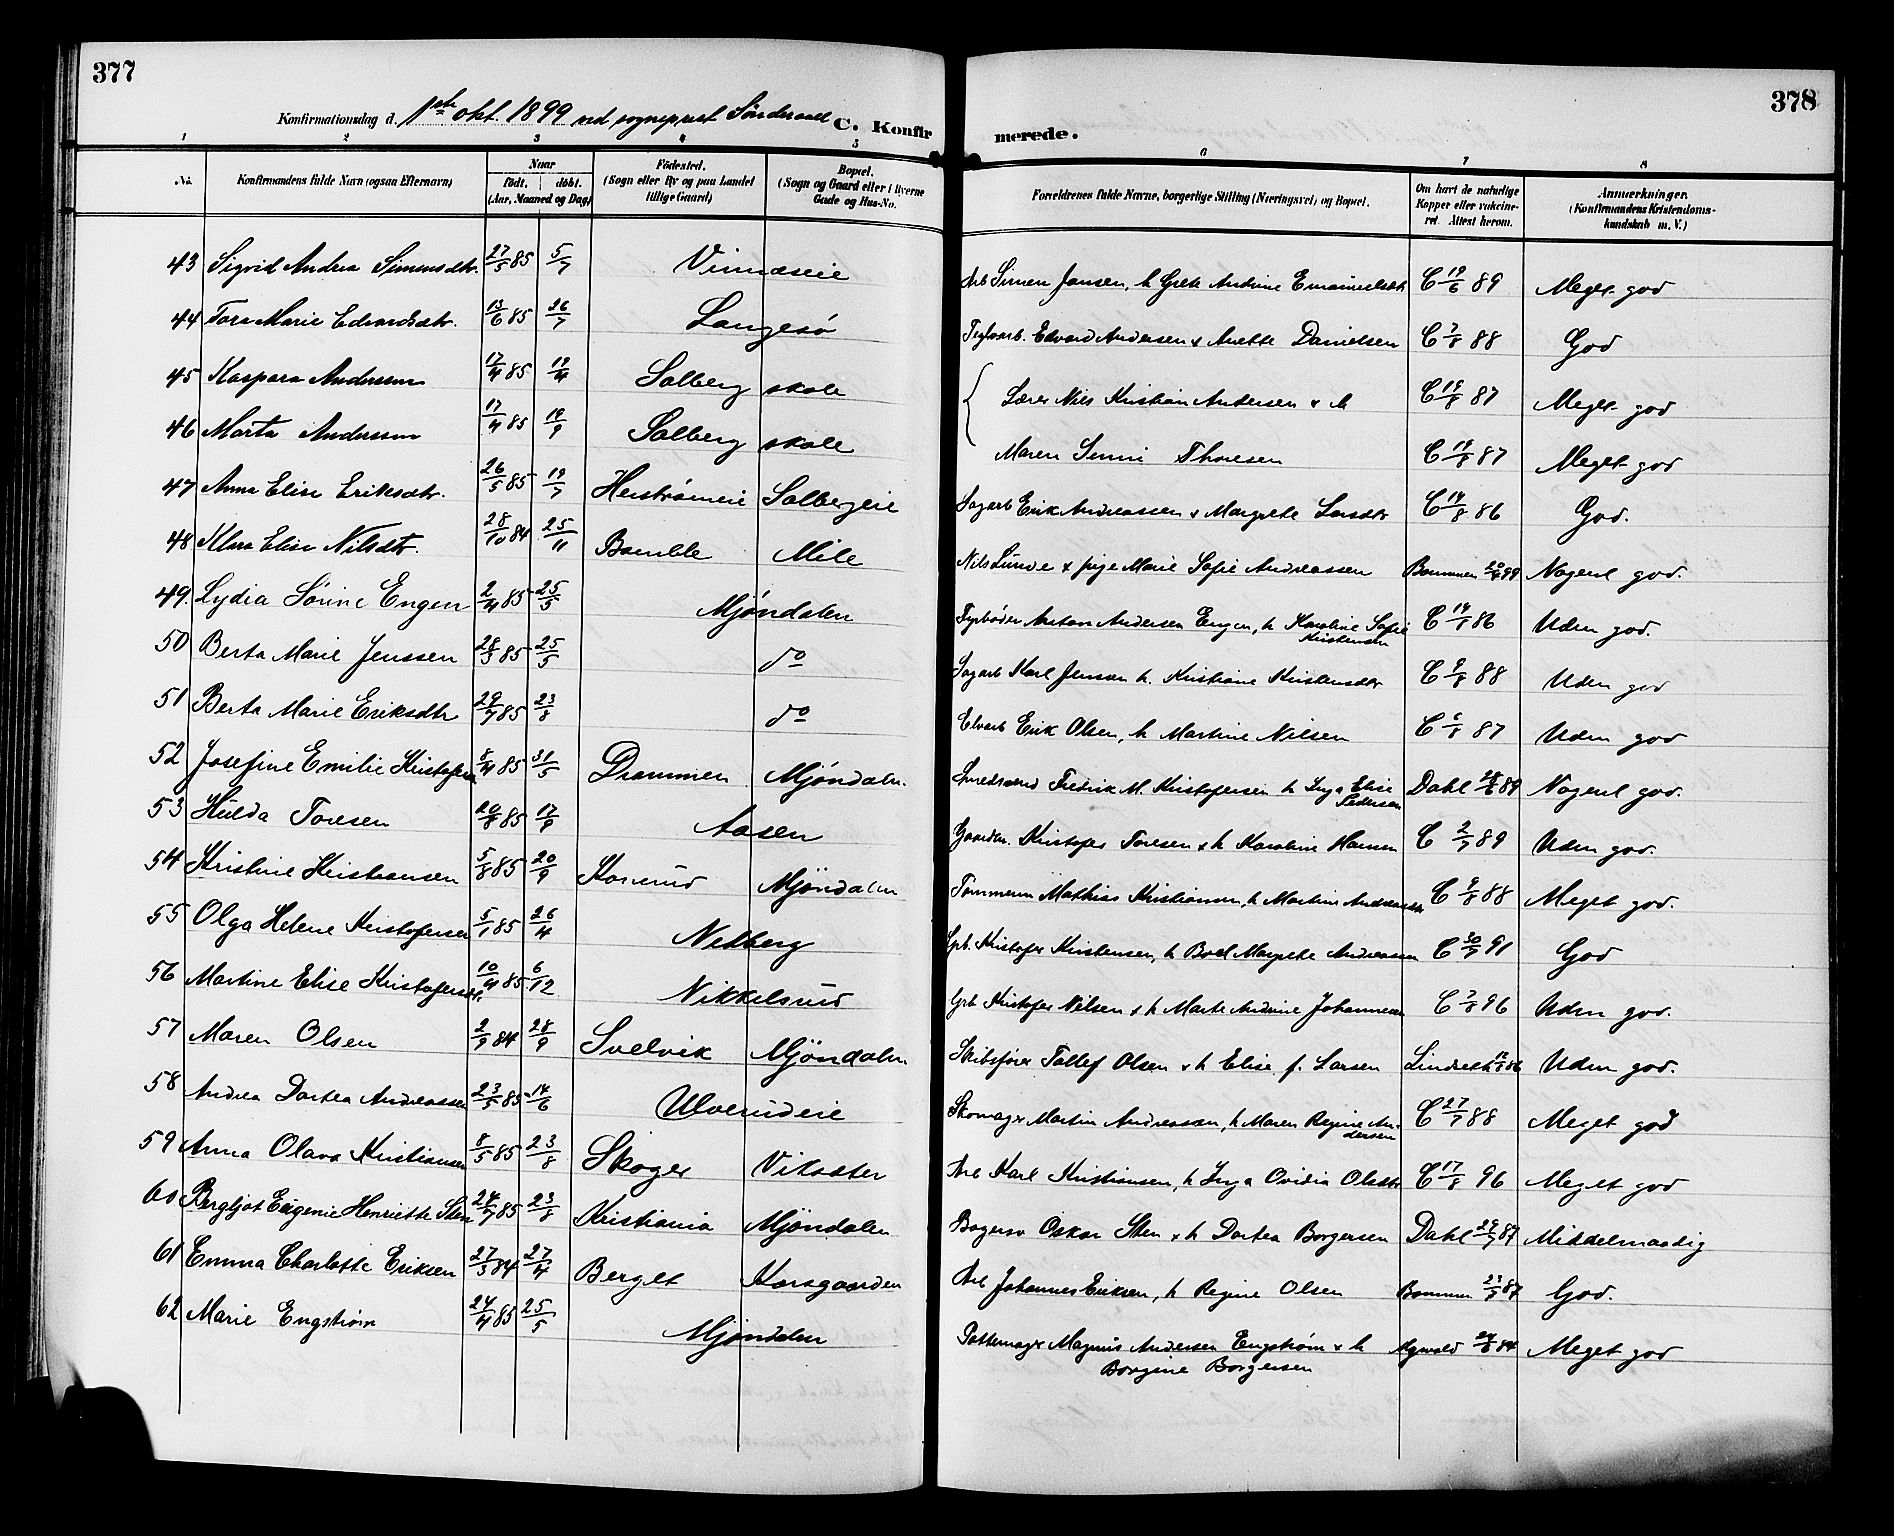 377
378
Konfirmationsdag d. 1ste okt. 1899 ved sogneprest Sönderaal C. Konfir
merede.
1 2 3 4 5 6 7 8
No. Konfirmandens fulde Navn (ogsaa Efternavn) Naar födt. döbt. (Aar, Maaned og Dag) Födested. (Sogn eller By og paa Landet tillige Gaard) Bopæl. (Sogn og Gaard eller i Byerne Gade og Hus-No. Forældrenes fulde Navne, borgerlige Stilling (Næringsvei) og Bopæl. Om havt de naturlige Kopper eller vakcineret. Attest herom. Anmærkninger. (Konfirmandens Kristendomskundskab m. V.)
43 Sigrid Andrea Simensdtr. 27/5 85 5/7 Vinnæseie Arb Simen Jansen, h Grete Andrine Emanuelsdtr C 19/6 89 Meget god
44 Tora Marie Edvardsdtr. 13/6 85 26/7 Langesö Teglarb. Edvard Andersen & Anette Danielsen C 7/8 88 God
45 Kaspara Anderssen 17/4 85 19/4 Solberg skole Lærer Nils Kristian Andersen & h C 19/8 87 Meget god
46 Marta Anderssen 17/4 85 19/9 Solberg skole Maren Sunni Thoresen C 19/8 87 Meget god
47 Anna Elise Eriksdtr. 26/5 85 19/7 Herströmeie Solbergeie Sagarb Erik Andreassen & Margrete Larsdtr C 14/8 86 God.
48 Klara Elise Nilsdtr. 28/10 84 25/11 Bamble Mile Nils Lunde & pige Marie Sofie Andreassen Bommen 20/9 99 Nogenl god.
49. Lydia Sörine Engen 2/4 85 25/5 Mjöndalen Fyrböder Anton Andersen Engen, h Karoline Sofie Kristensen C 14/7 86 Uden god.
50 Berta Marie Jenssen 28/3 85 25/5 do Sagarb Karl Jensen h. Kristiane Kristensdtr C 9/8 88 Uden god
51 Berta Marie Eriksdtr 29/7 85 23/8 do Elvarb Erik Olsen, h Martine Nilsen C 6/8 87 Uden god
52 Josefine Emilie Kristofersen 8/4 85 31/5 Drammen Mjöndaln. Smedsvend Fredrik M. Kristofersen h Inga Elise Pedersen Dahl 28/6 89 Nogenl god.
53 Hulda Toresen 20/8 85 17/9 Aasen Gaardm. Kristofer Toresen & h Karoline Hansen C 2/7 89 Uden god.
54 Kristine Kristiansen 5/8 85 20/9 Korverud Mjöndaln Tömmerm Mathias Kristiansen, h Martine Andreasdtr C 9/8 88 Meget god.
55 Olga Helene Kristofersen 5/1 85 26/4 Nedberg Grb. Kristofer Kristensen, h Boel Margrete Andreassen C 30/7 91 God
56 Martine Elise Kristofersdtr. 10/4 85 6/12 Nikkelsrud Grb Kristofer Nilsen & h Marte Andrine Johannessen C 7/8 96 Uden god.
57 Maren Olsen 2/9 84 28/9 Svelvik Mjöndaln Skibsförer Tollef Olsen & h Elise f. Larsen Lindseth 86 Uden god.
58 Andrea Dortea Andreassen 23/5 85 14/6 Ulverudeie Skomager Martin Andreassen, h Maren Regine Andersen C 27/7 88 Meget god
59 Anna Olava Kristiansen 8/5 85 23/8 Skoger Vikaater Arb Karl Kristiansen, h Inga Ovidia Olsdtr C 17/8 96 Meget god
60 Bergljot Eugenie Henriette Sten 24/7 85 23/8 Kristiania Mjöndalen Bagersv Oskar Sten & h Dortea Borgersen Dahl 29/7 87 Middelmaadig
61 Emma Charlotte Eriksen 27/3 84 27/4 Berget Korsgaarden Arb Johannes Eriksen, h Regine Olsen Bommen 23/7 87 God.
62 Marie Engström 24/4 85 25/5 Mjöndalen Pottemager Magnus Andersen Engström & h Borgine Borgersen Meget god